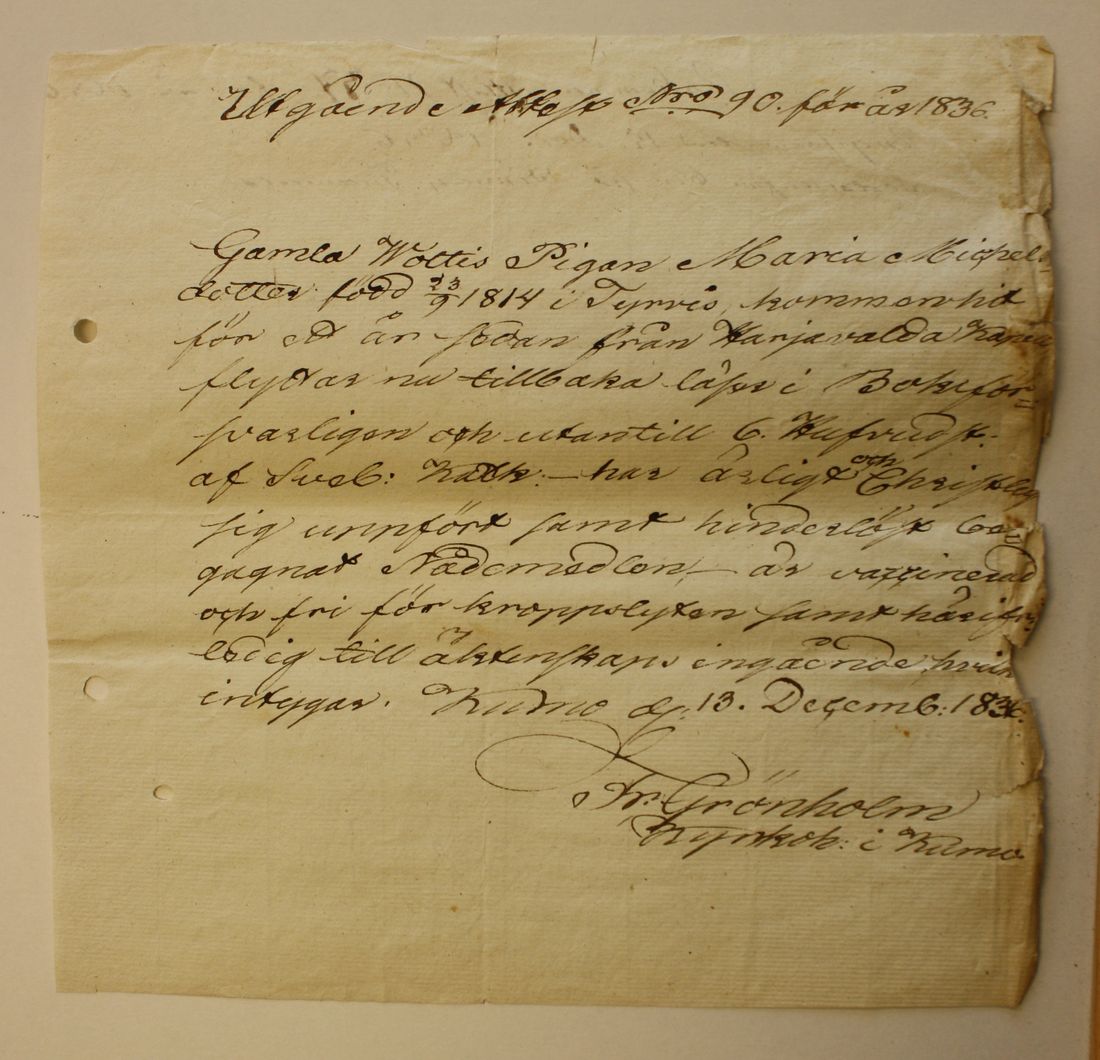 Utgående Attest Nro 90. för år 1836.
Gamla Wottis Pigan Maria Michels
dotter född 23/9 1814 i Tyrvis, kommen hit
för ett år sedan från Harjavalda
flyttar nu tillbaka läser i Bok för-
svarligen och utantill 6. Hufvudst:
af Sveb: Katk: – har ärligt och Christlig
sig uppfört samt hinderlöst be
gagnat Nådemedlen, – är vaccinerad
och fri för kroppslyten samt härifr:
ledig till äktenskaps ingående, hvil
intygar. Kumo d: 13. Decemb: 1836.
Fr. Grönholm
Kyrkoh: i Kumo